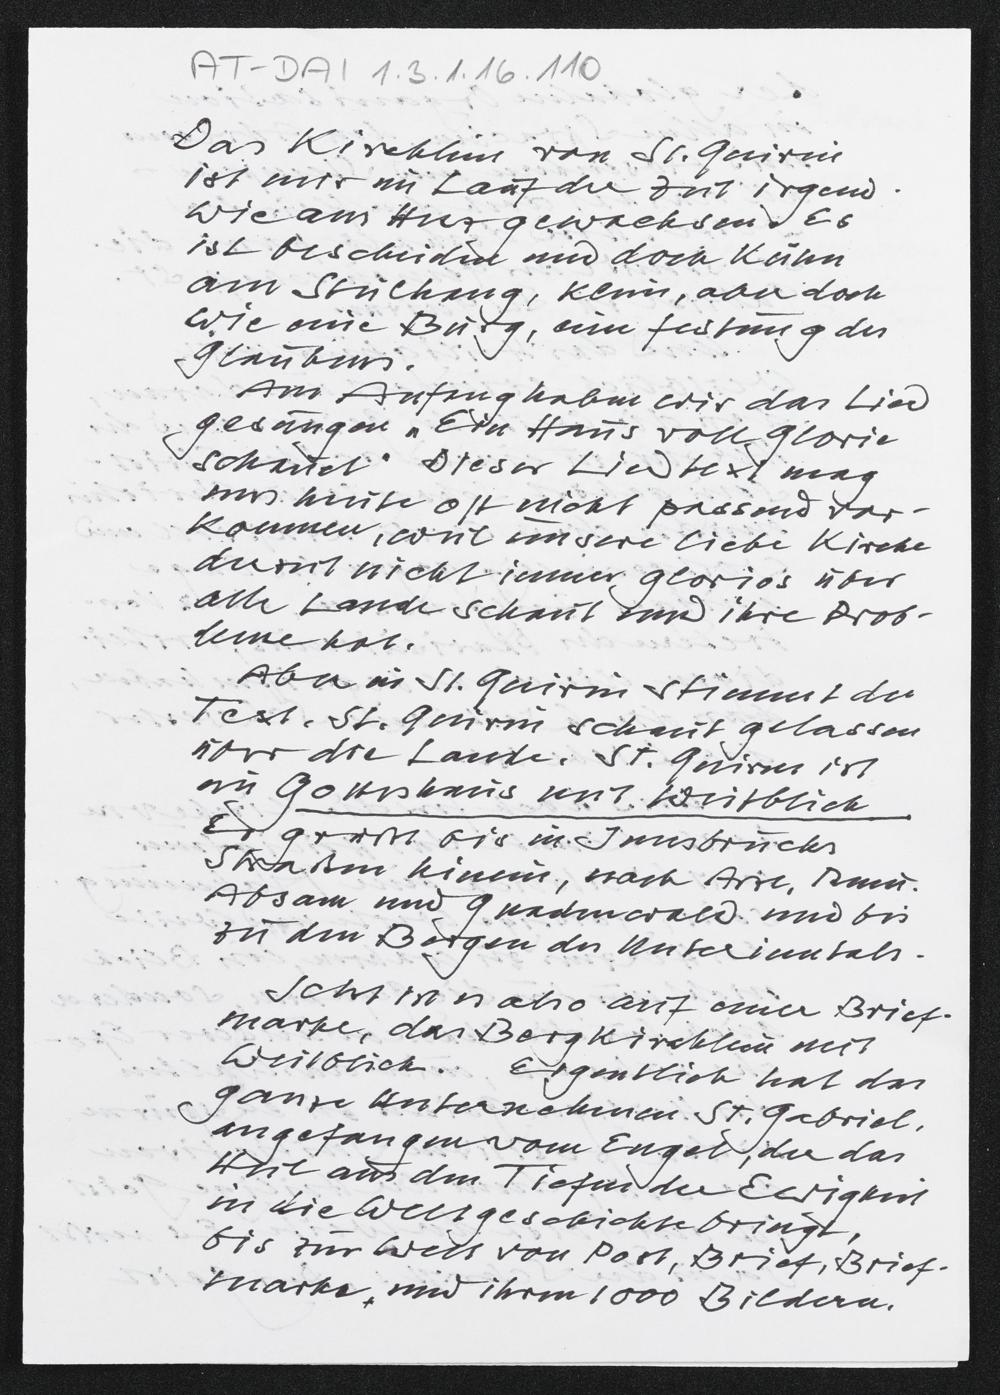 AT-DAI 1.3.1.16.110
Das Kirchlein von St. Quirin
ist mir im Lauf der Zeit irgend-
wie ans Herz gewachsen. Es
ist bescheiden und doch kühn
am Steilhang, klein, aber doch
wie eine Burg, eine Festung des
Glaubens.
Am Anfang haben wir das Lied
gesungen „Ein Haus voll Glorie
schauet" Dieser Liedtext mag
uns heute oft nicht passend vor-
kommen, weil unsere liebe Kirche
derzeit nicht immer glorios über
alle Lande schaut und ihre Prob-
leme hat.
Aber in St. Quirin stimmt der
Text. St. Quirin schaut gelassen
über die Lande. St. Quirin ist
ein Gotteshaus mit Weitblick
Er grüßt bis in Innsbrucks
Straßen hinein, nach Arzl, Rum.
Absam und Gnadenwald und bis
zu den Bergen des Unterinntals.
Jetzt ist es also auf einer Brief-
marke, das Bergkirchlein mit
Weitblick. Eigentlich hat das
ganze Unternehmen St. Gabriel,
angefangen vom Engel, der das
Heil aus den Tiefen der Ewigkeit
in die Weltgeschichte bringt,
bis zur Welt von Post, Brief, Brief-
marke, und ihren 1000 Bildern.